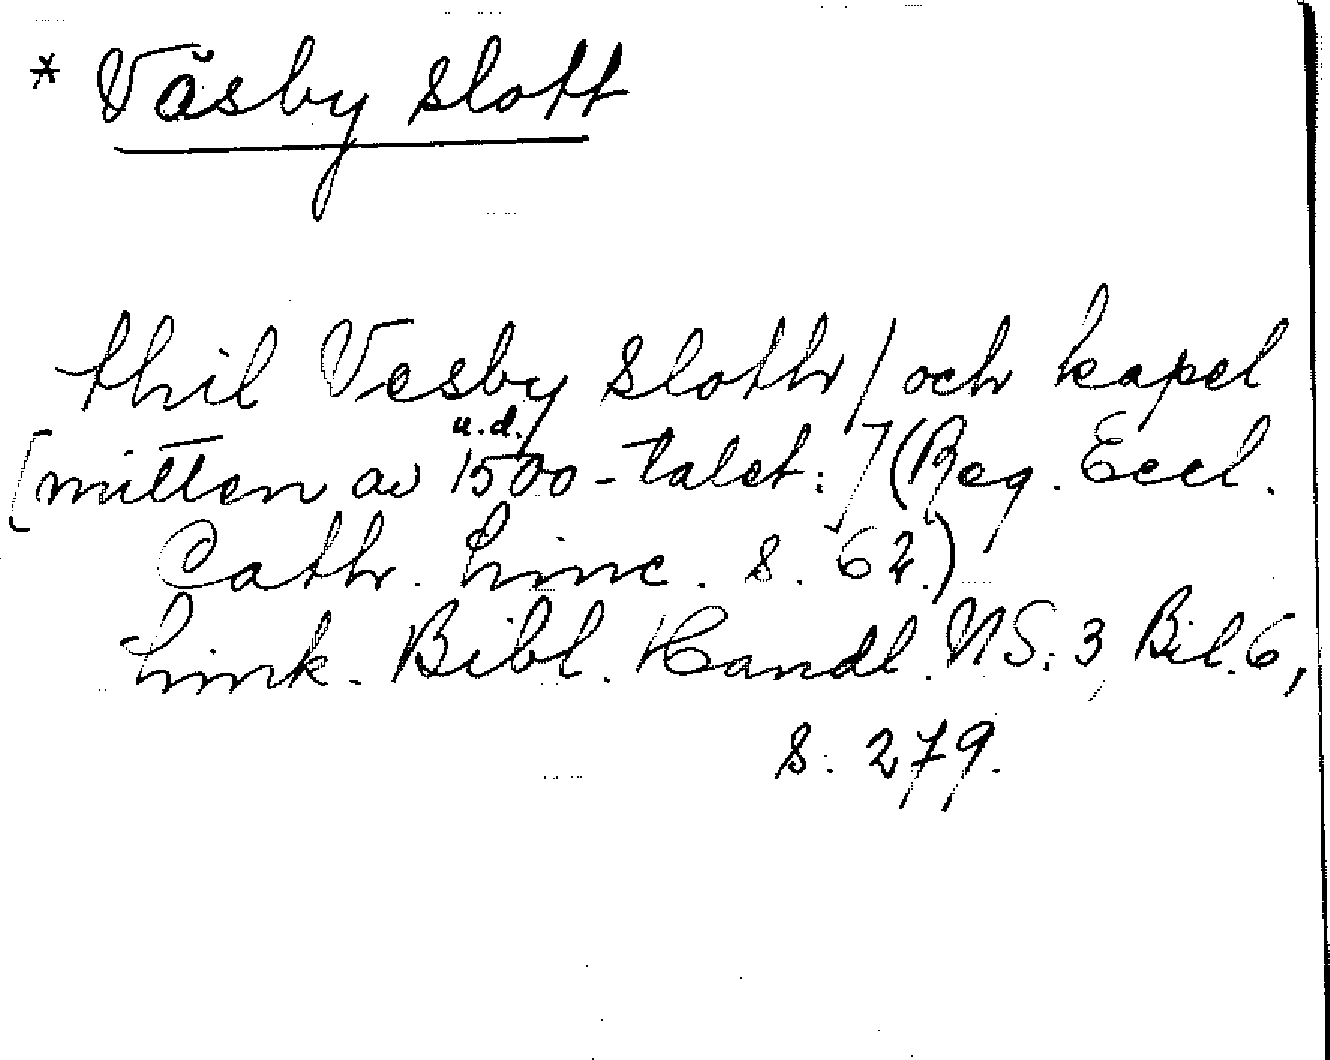 * Väsby slott
thil Vesby sloth / och kapel
u.d.
[mitten av 1500-talet:] (Reg. Eccl.
Cath. Linc. s. 62.)
Link. Bibl. Handl. NS: 3, Bil. 6,
s. 279.